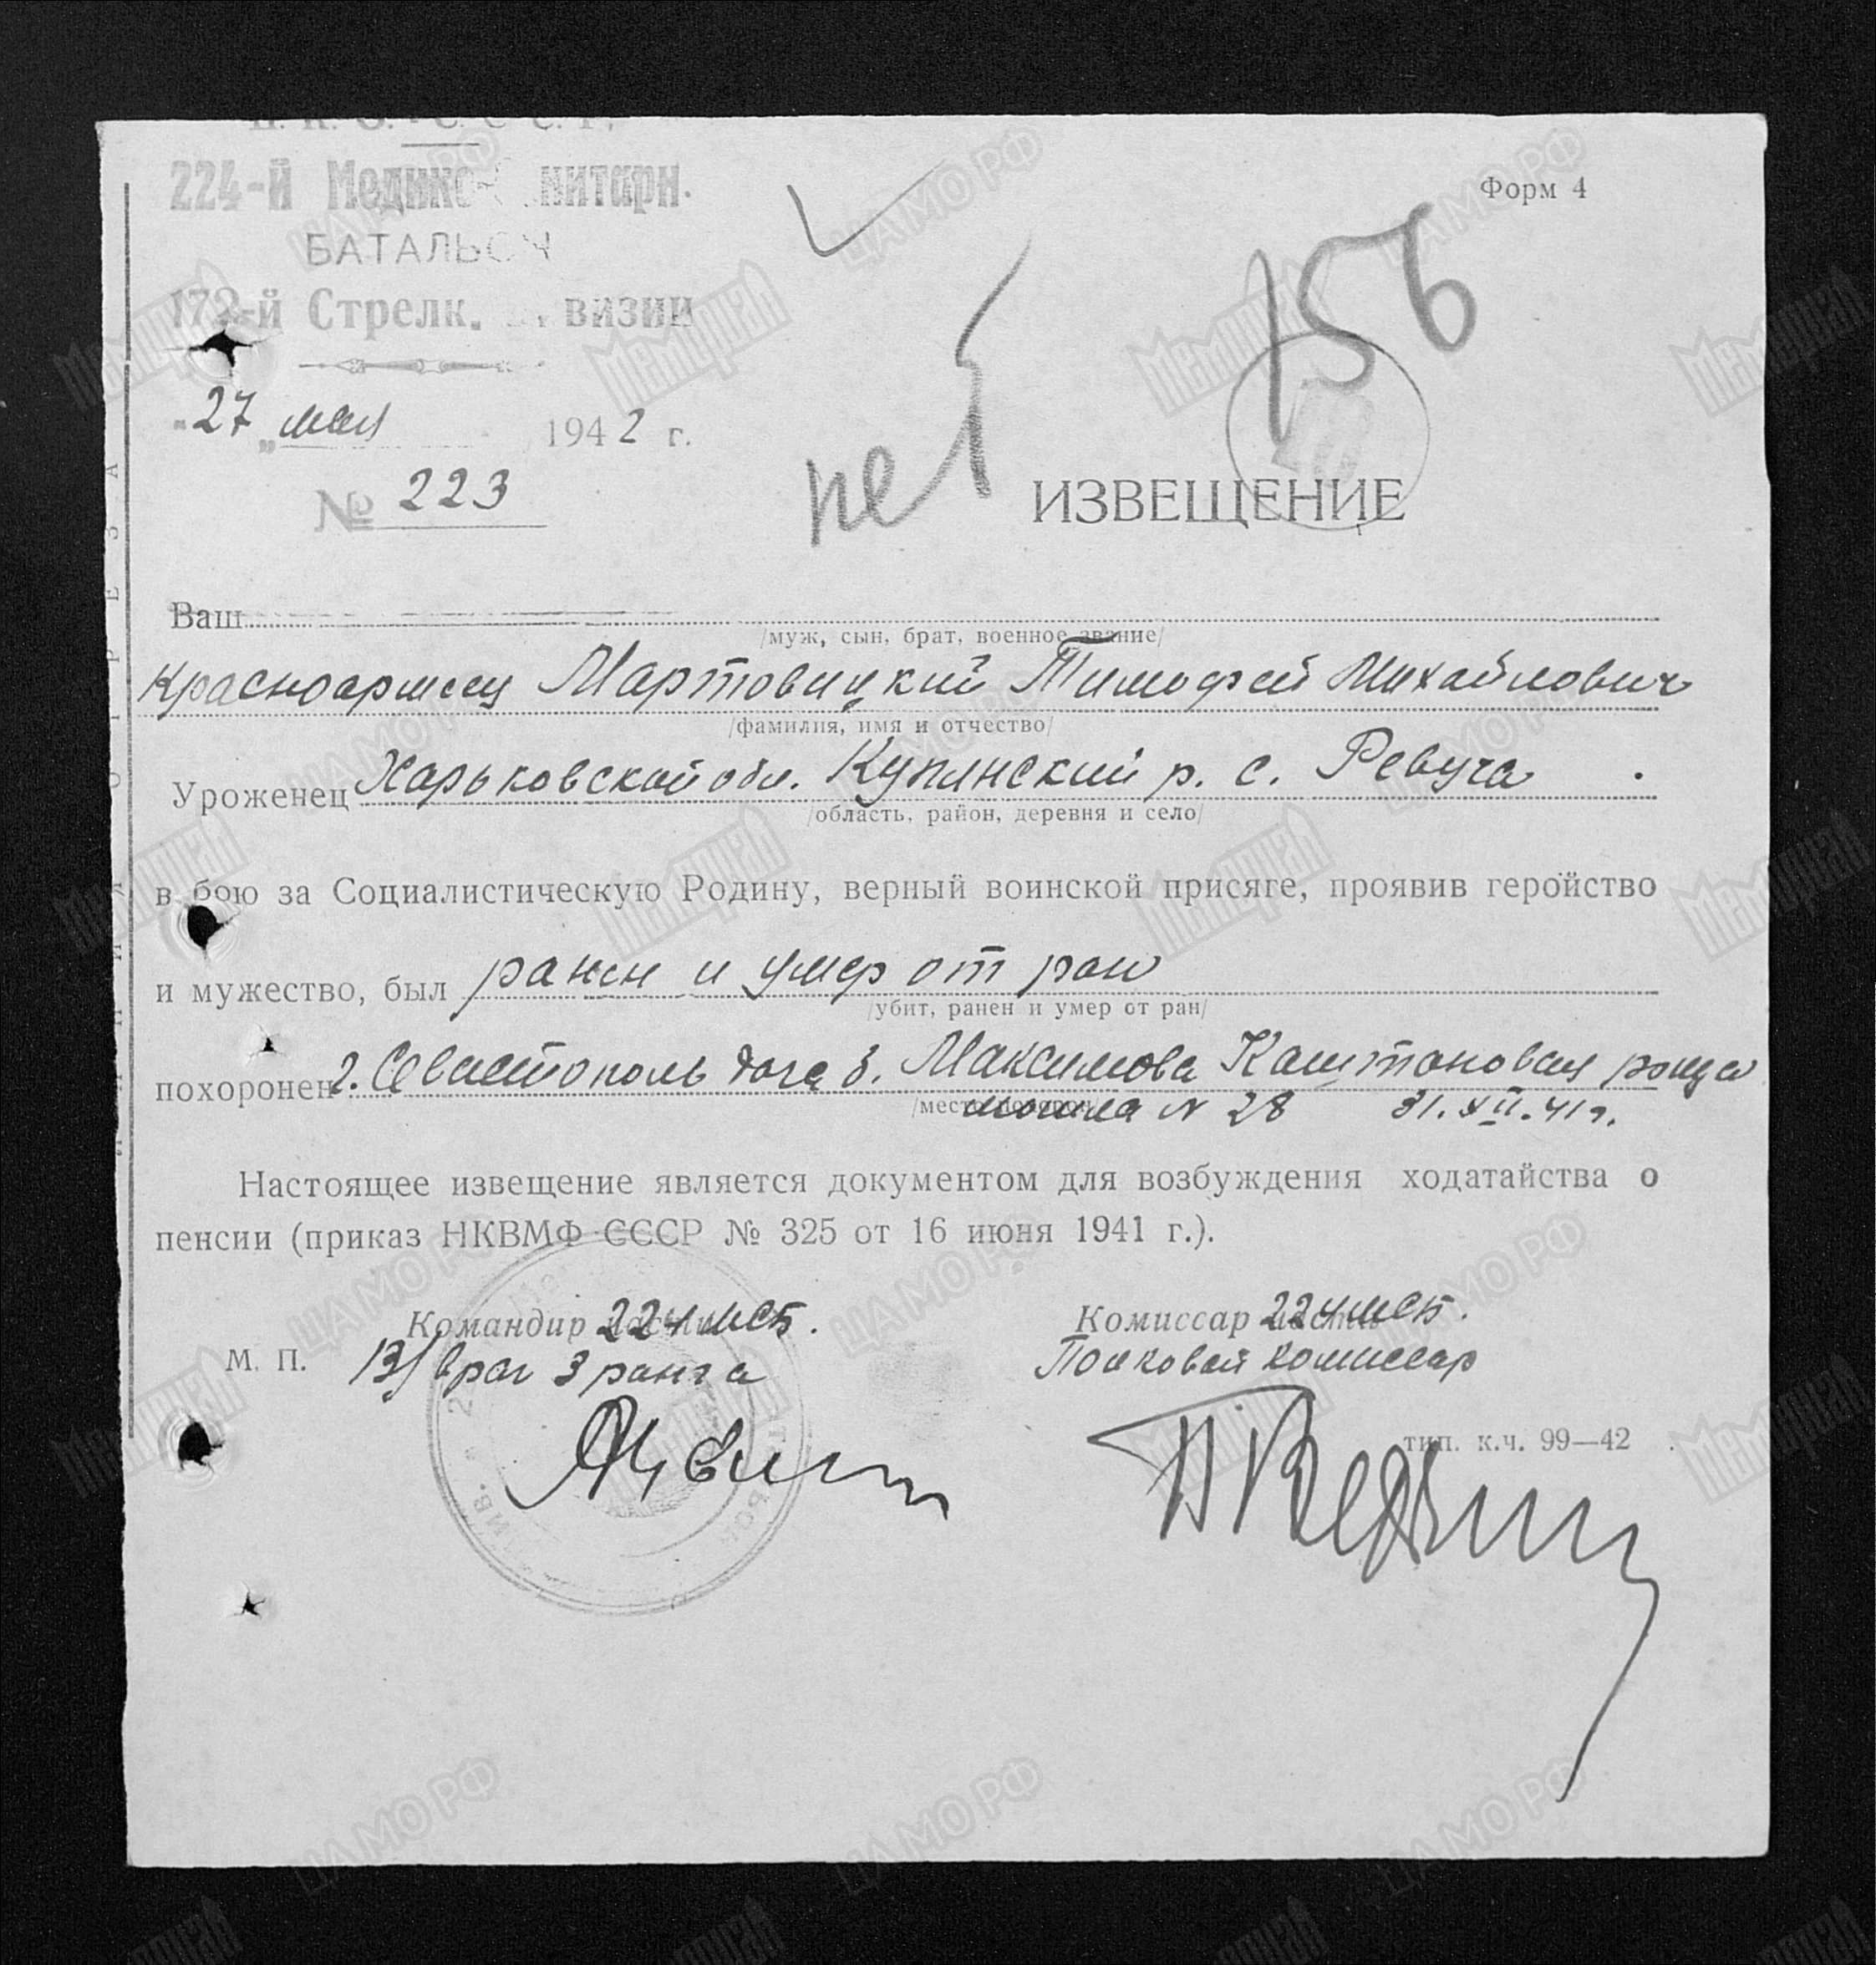 Н. К. О. - С. С. С. Р.
224-й Медико- нитарн.
БАТАЛЬОН
172-й Стрелк. визии
Форм 4
156
"27" мая 1942 г.
№ 223
нет
ИЗВЕЩЕНИЕ
Ваш
/муж, сын, брат, военное звание/
Красноармеец Мартовицкий Тимофей Михайлович
/фамилия, имя и отчество/
Уроженец Харьковской обл. Купянский р. с. Ревуча
/область, район, деревня и село/
в бою за Социалистическую Родину, верный воинской присяге, проявив геройство
и мужество, был ранен и умер от ран
/убит, ранен и умер от ран/
похоронен г. Севастополь дача б. Максимова Каштановая роща
могила N 28 31.XII.41г.
Настоящее извещение является документом для возбуждения ходатайства о
пенсии (приказ НКВМФ СССР № 325 от 16 июня 1941 г.).
Командир 224 МСБ.
Комиссар 224 МСБ.
М. П.
В/врач 3 ранга
Полковой комиссар
тип. к.ч. 99—42